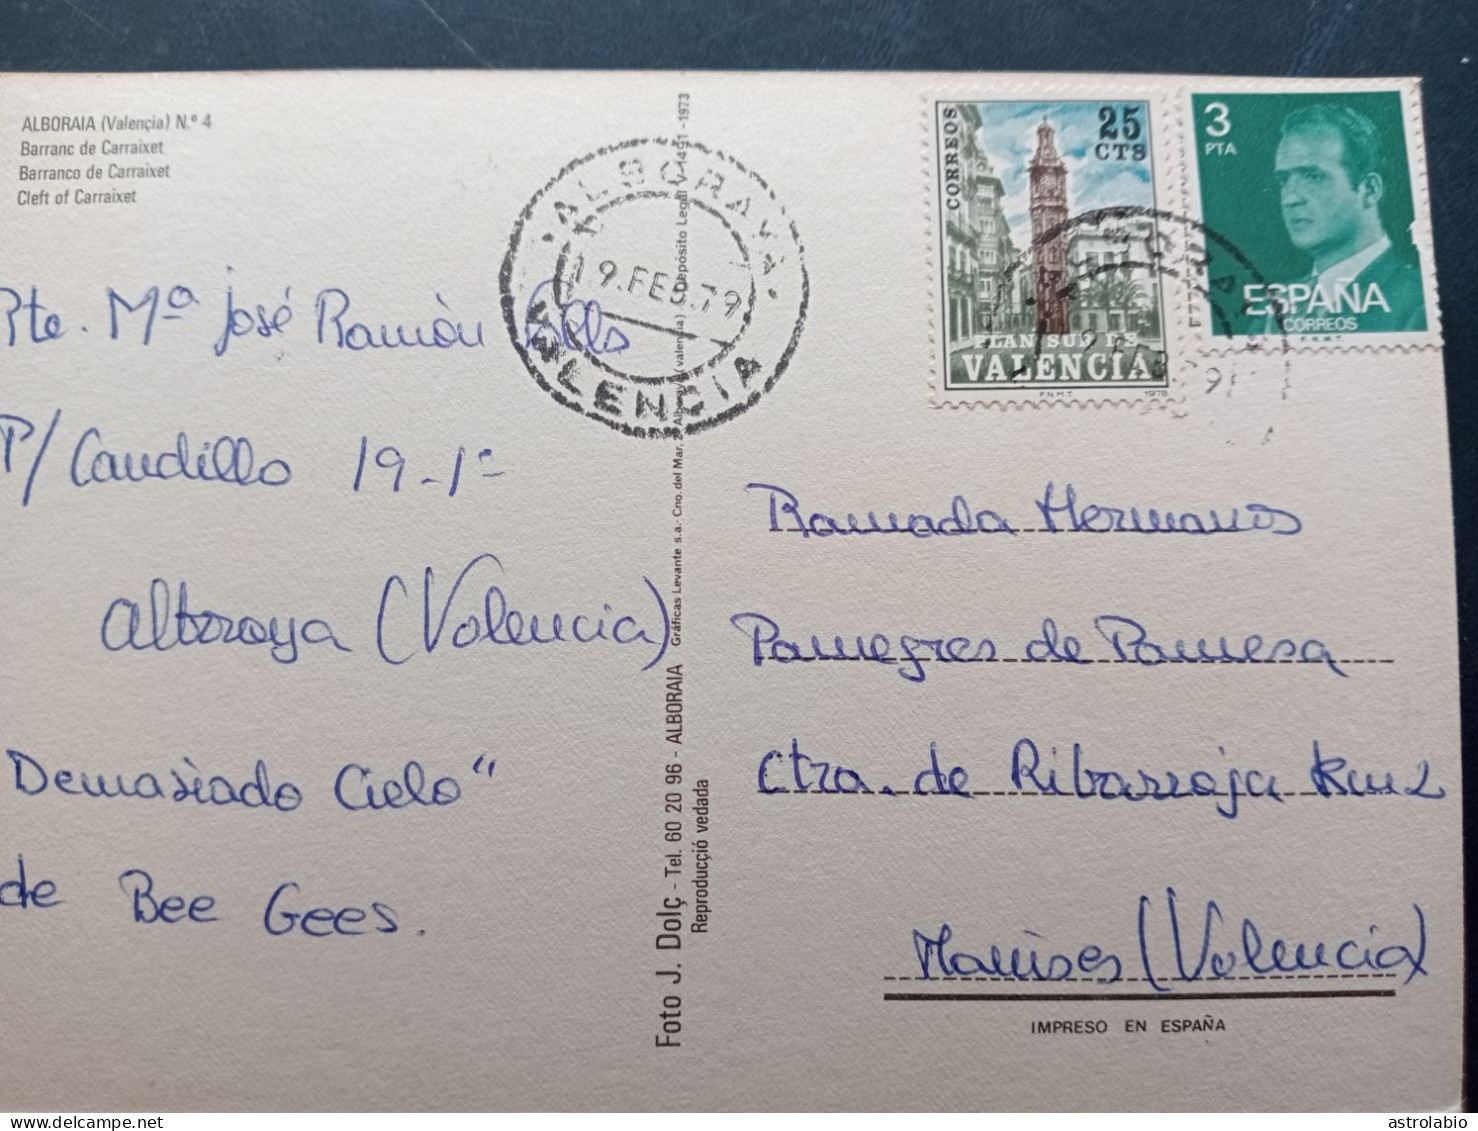 ALBORAIA (Valençia) N.º 4
Barranc de Carraixet
Barranco de Carraixet
Cleft of Carraixet
Rte. Mª José Ramón
P/ Caudillo 19-1º
Alboraya (Valencia)
Demasiado Cielo"
de Bee Gees.
ALBORAYA
19.FEB.79
VALENCIA
Foto J. Dolç - Tel. 60 20 96 - ALBORAIA
Reproducçió vedada
Gráficas Levante s.a. Cno. del Mar, Alboraya (valencia) Depósito Legal V-1491-1973
CORREOS
25
CTS
PLAN SUR DE
VALENCIA
F.N.M.T. 1978
3
PTA
ESPAÑA
CORREOS
F.N.M.T.
Ramada Hermanos
Pamegres de Pamesa
Ctra. de Ribarroja Km 2
Manises (Valencia)
IMPRESO EN ESPAÑA
astrolabio